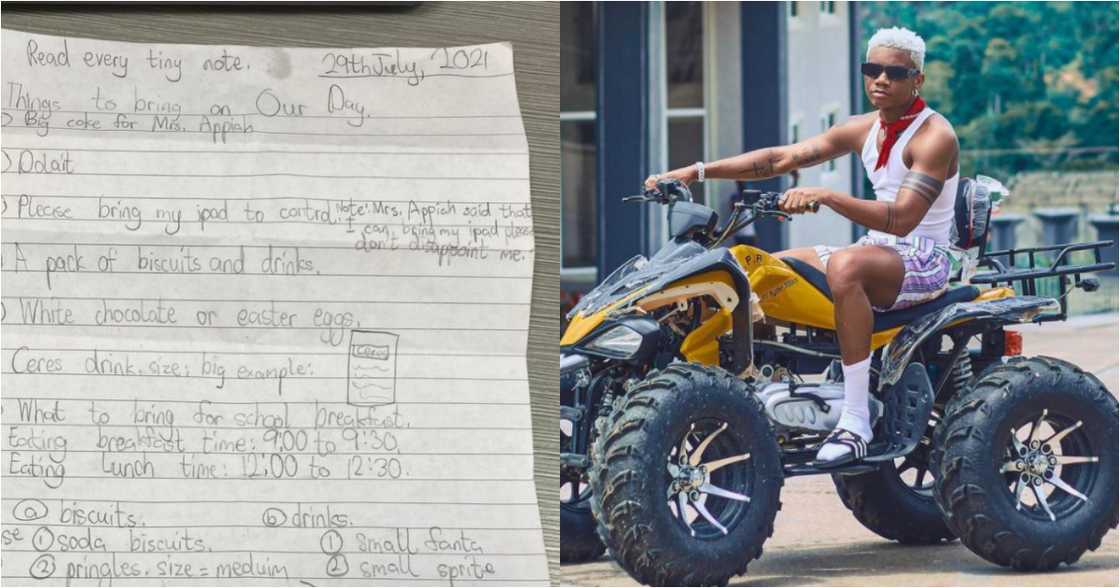 Read every tiny note. 29th July, 2021
Things to bring on Our Day.
Big cake for Mrs. Appiah
Dolait
Please bring my ipad to control. Note: Mrs. Appiah said that
I can bring my ipad please
don't disappoint me.
A pack of biscuits and drinks.
White chocolate or easter eggs.
Ceres drink. size: big example: Ceres
What to bring for school breakfast.
Eating breakfast time: 9:00 to 9:30.
Eating Lunch time: 12:00 to 12:30.
a biscuits. b drinks.
se 1 soda biscuits. 1 small fanta
2 pringles. size = meduim 2 small sprite